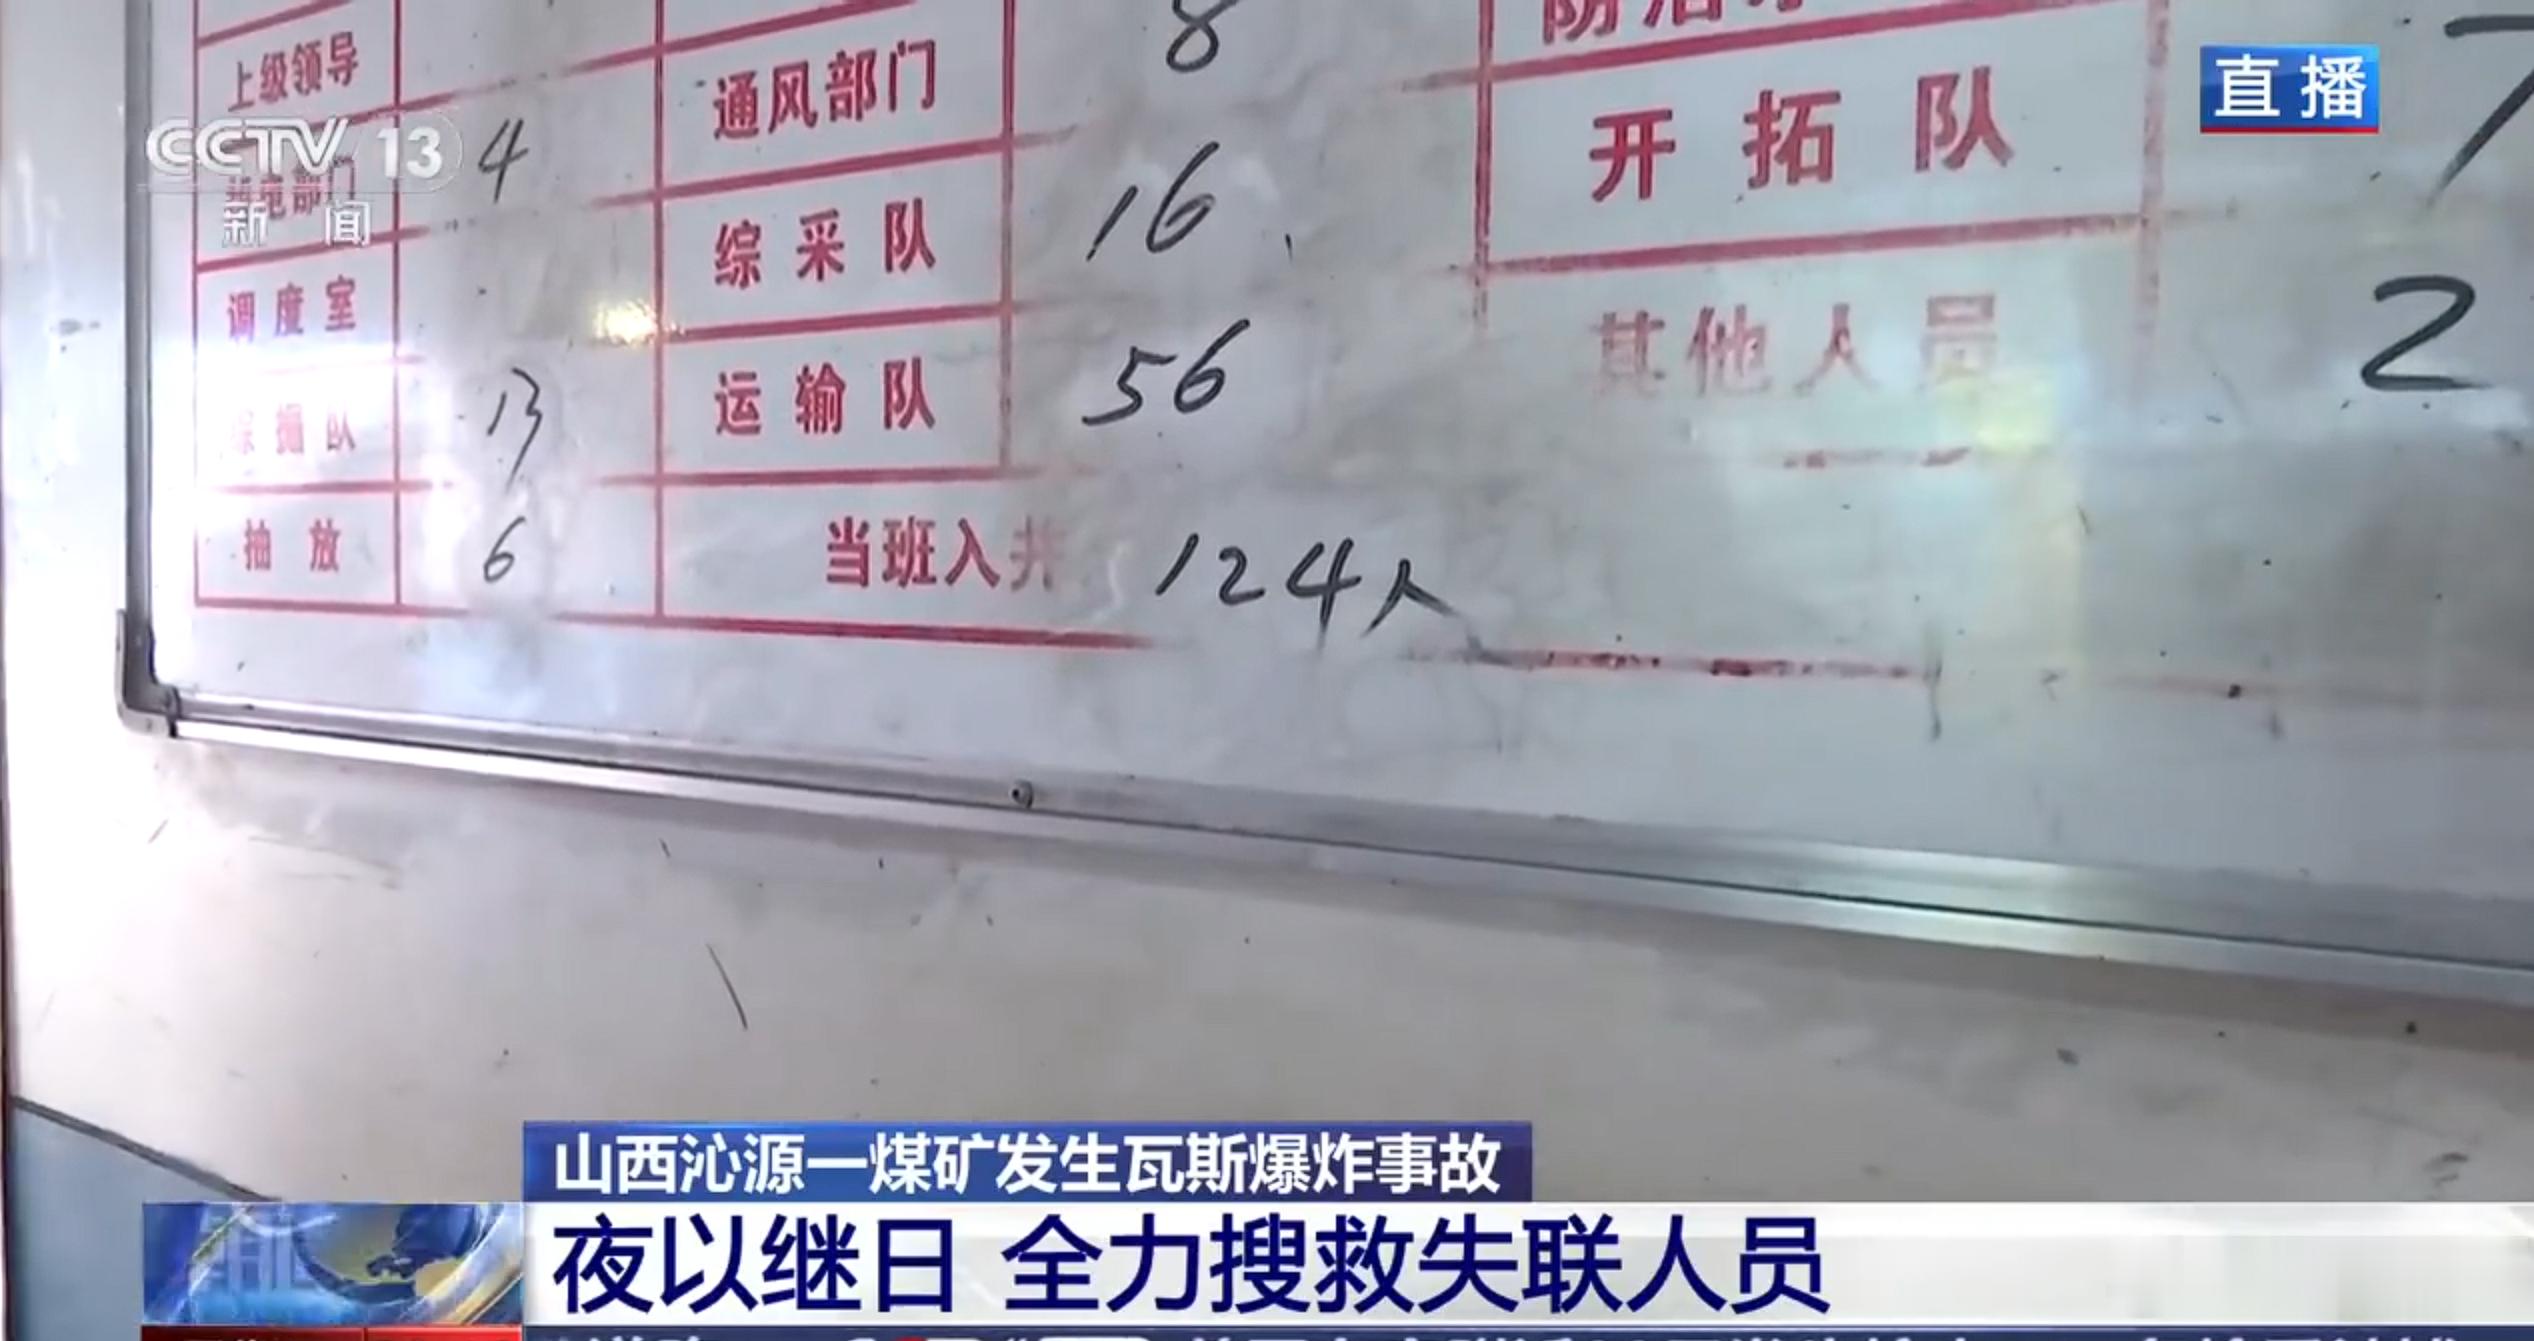 直播
CCTV 13
新闻
上级领导
通风部门 8
开拓队 7
4
综采队 16
调度室
其他人员 2
13
运输队 56
抽放 6
当班入井 124人
山西沁源一煤矿发生瓦斯爆炸事故
夜以继日 全力搜救失联人员